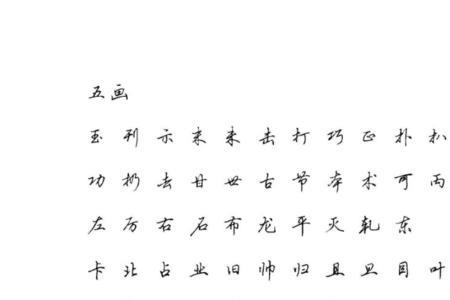 五画
玉 刊 示 末 未 击 打 巧 正 扑 扒
功 扔 去 甘 世 古 节 本 术 可 丙
左 厉 右 石 布 龙 平 灭 轧 东
卡 北 占 业 旧 帅 归 且 旦 目 叶